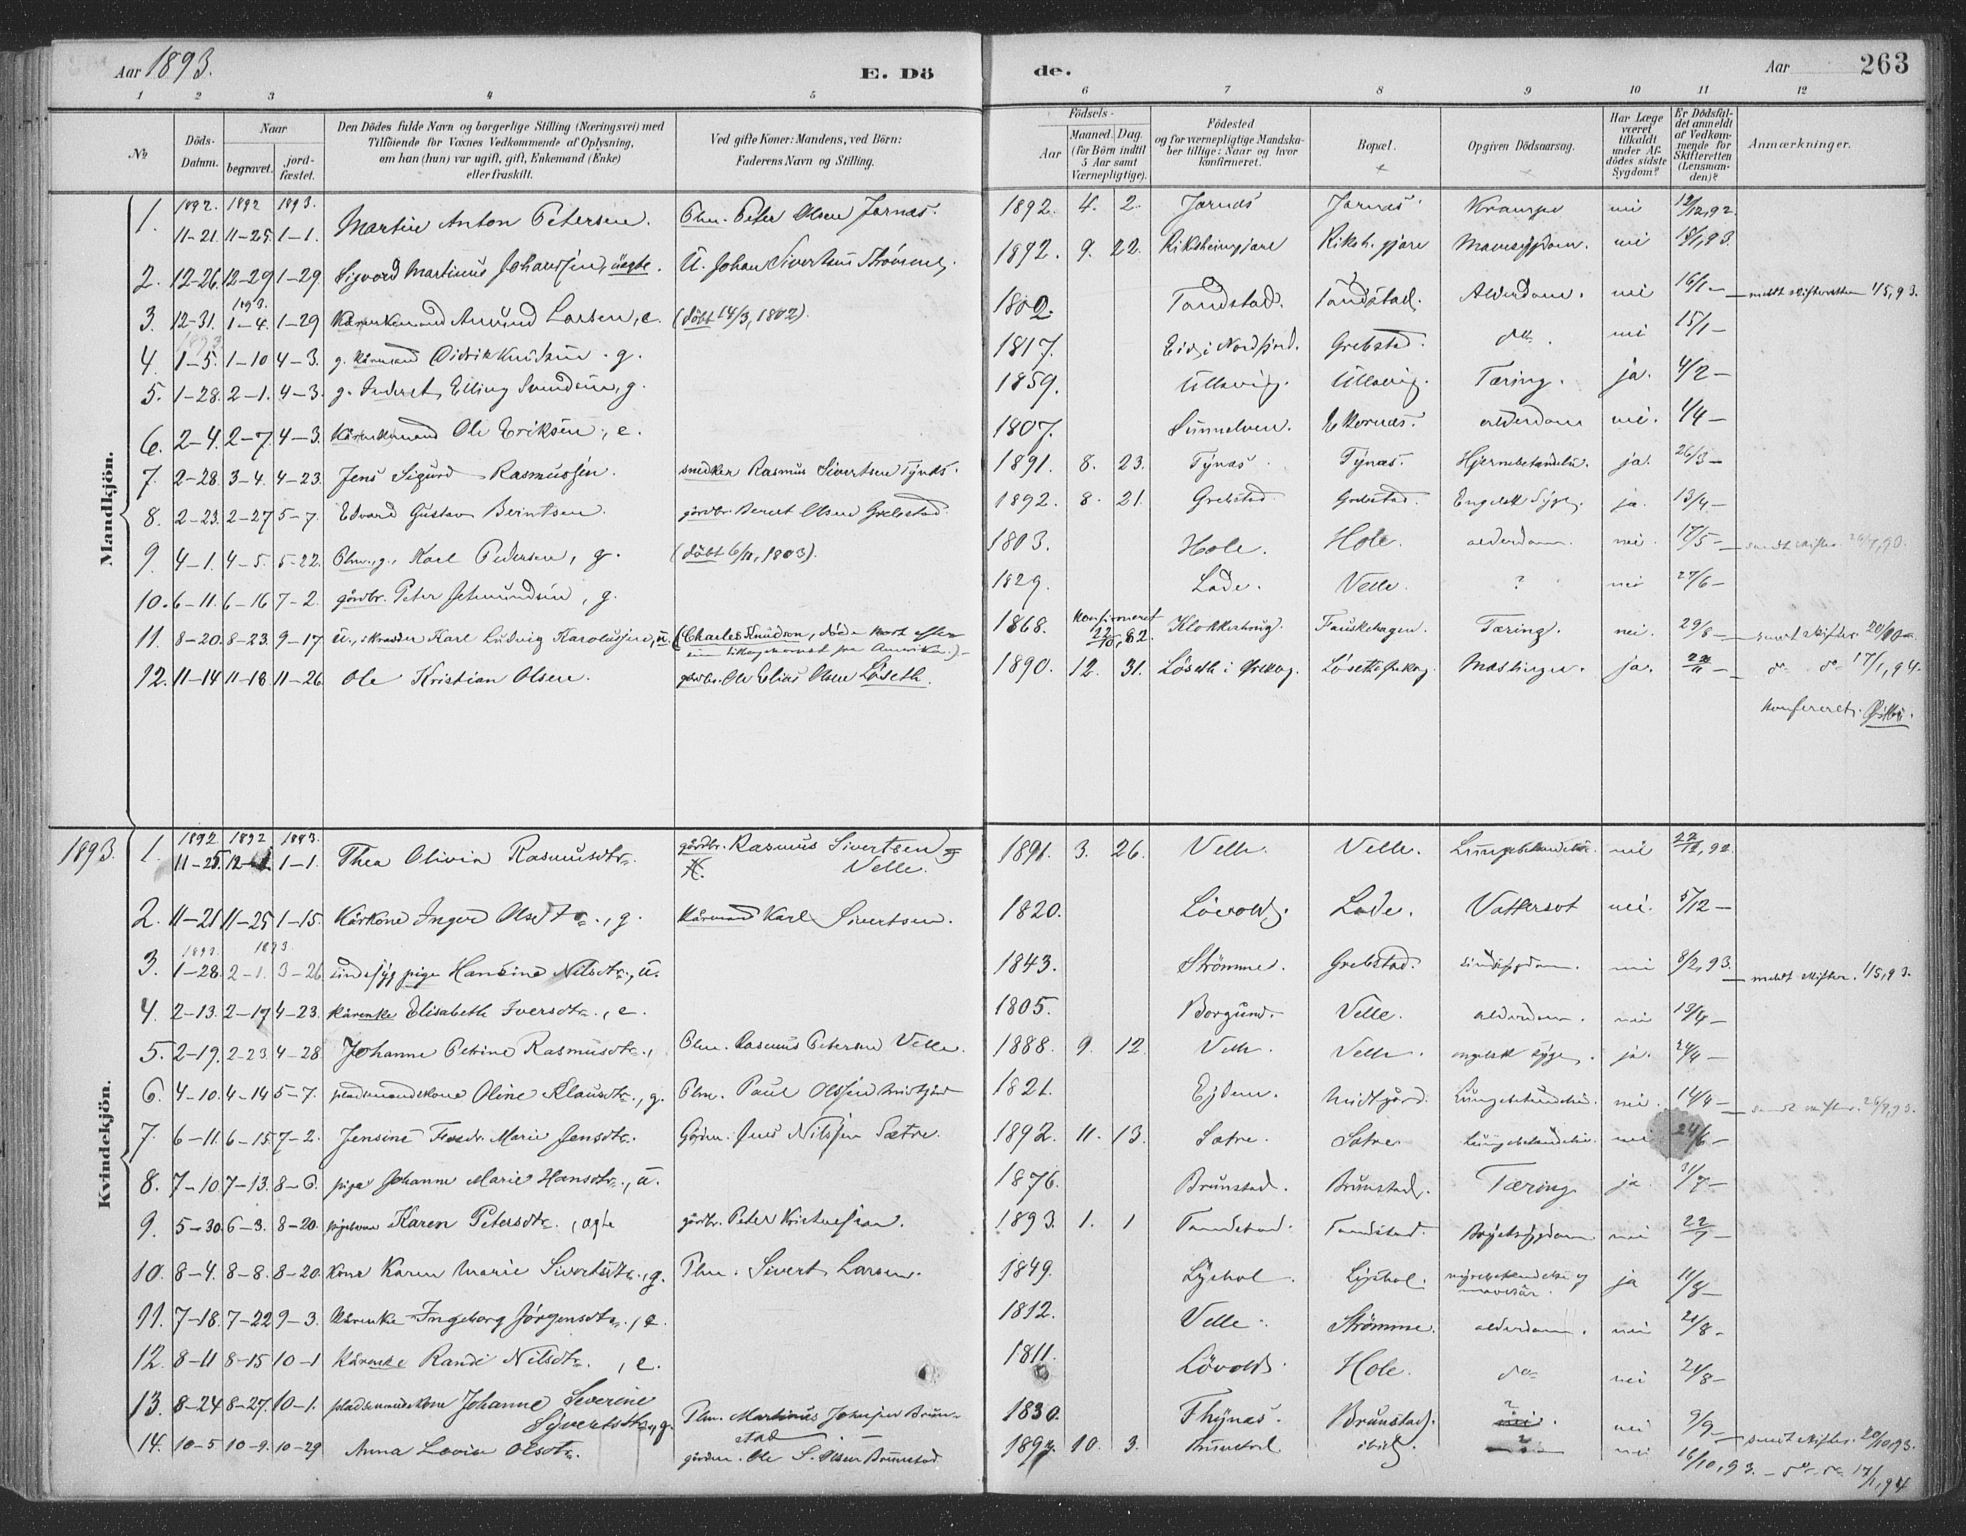 Aar 1893.
E. Dö
de.
Aar
263
1 2 3 4 5 6 7 8 9 10 11 12
№
Döds-Datum.
Naar
begravet.
jord-fæstet.
Den Dödes fulde Navn og borgerlige Stilling (Næringsvei) med
Tilföiende for Voxnes Vedkommende af Oplysning,
om han (hun) var ugift, gift, Enkemand (Enke)
eller fraskilt.
Ved gifte Koner: Mandens, ved Börn:
Faderens Navn og Stilling.
Födsels-
Aar
Maaned. Dag.
(for Börn indtil
5 Aar samt
Værnepligtige).
Födested
og for værnepligtige Mandska-
ber tillige: Naar og hvor
konfirmeret.
Bopæl.
Opgiven Dödsaarsag.
Har Læge
været
tilkaldt
under Af-
dödes sidste
Sygdom?
Er Dödsfal-
det anmeldt
af Vedkom-
mende for
Skifteretten
(Lensman-
den)?
Anmærkninger.
Mandkjön.
1. 1892. 11-21. 1892 11-25. 1893. 1-1. Martin Anton Petersen. Plm. Peter Olsen Jarnæs. 1892. 4. 2. Jarnæs Jarnæs. Krampe nei 12/12,92.
2. 12-26. 12-29. 1-29. Sigvard Martinus Johanssen, uægte. U. Johan Sivertsen Strømme. 1892. 9. 22. Riksheimgjære Riksh. gjære Mavesygdom. nei 15/1,93.
3. 12-31. 1893. 1-4. 1-29 Amund Larsen, e. (döbt 14/3, 1802). 1802. Tandstad. Tandstad. Alderdom. nei 16/1 — meldt skifteretten 1/5,93.
4. 1893 1-5. 1-10 4-3. g. kårmand Didrik Knudsen. g. 1817. Eid i Nordfjord. Grebstad. do. nei 15/1 —
5. 1-28. 2-1. 4-3. g. Elling Svendsen, g. 1859. Ullavig. Ullavig. Tæring. ja. 4/2 —
6. 2-4. 2-7. 4-3. Ole Eriksen, e. 1807. Sunnelven. Ekornæs. alderdom nei. 1/4 —
7. 2-28. 3-4. 4-23. Jens Sigurd Rasmussen. snedker Rasmus Sivertsen Tynæs. 1891. 8. 23. Tynæs. Tynæs. Hjernebetændelse. ja. 26/3 —
8. 2-23. 2-27 5-7. Edvard Gustav Berntsen. gårdbr. Bernt Olsen Grebstad. 1892. 8. 21. Grebstad. Grebstad. Engelsk Syge. ja. 13/4 —
9. 4-1. 4-5. 5-22. Plm., g., Karl Pedersen, g. (döbt 6/11, 1803). 1803. Hole. Hole. alderdom. nei. 17/5 —
10. 6-11. 6-16 7-2. gårdbr. Peter g. 1829. Lade. Velle. ? nei 27/6 —
11. 8-20. 8-23. 9-17 u., skrædder Karl Ludvig Karolussen, u. (Charles Knudson, döde kort efter
sin tilbagekomst fra Amerika.) 1868. Konfirmeret 22/10, 82. Klokkerhaug. Fauskehagen. Tæring. nei. 29/8 —
12. 11-14 11-18. 11-26. Ole Kristian Olsen. gårdbr. Ole Elias Olsen Løseth. 1890. 12. 31. Løseth i Ørskog. Mæslinger. ja. — do do 17/1,94.
Kvindekjön.
1893. 1. 1892 11-25. 1892 1893. 1-1. Thea Olivia Rasmusdtr. gårdbr. Rasmus Sivertsen
Velle. 1891. 3. 26. Velle. Velle. Lungebetændelse. nei 22/12, 92.
2. 11-21 11-25 1-15. Kårkone Inger Olsdtr., g. Kårmand Karl Sivertsen. 1820. Lövold. Lade. Vattersot nei. 5/12 —
3. 1893. 1-28. 1893. 2-1. 3-26. sindssyg pige Hansine Nilsdtr., u. 1843. Strömme. Grebstad. Sindssygdom. nei 8/2,93. — meldt skifter. 1/5,93.
4. 2-13. 2-17 4-23. kårenke Elisabeth Iversdtr., e. 1805. Borgund. Velle. alderdom. nei 19/4 —
5. 2-19. 2-23 4-28. Johanne Petrine Rasmusdtr. Plm. Rasmus Petersen Velle. 1888. 9. 12. Velle. Velle. engelsk syge. ja. 24/4 —
6. 4-10. 4-14 5-7. pladsmandskone Oline Klausdtr., g. Plm. Paul Olssen Midtgård 1821. Midtgård. Lungebetændelse. nei. 14/4 —
7. 6-11. 6-15. 7-2. Jensine Marie Jensdtr. Gårdm. Jens Nilssen Sætre. 1892. 11. 13. Sætre. Sætre. Lungebetændelse. nei 24/6 —
8. 7-10. 7-13. 8-6. pige Johanne Marie Hansdtr., u. 1876. Brunstad. Brunstad. Tæring ja. —
9. 5-30. 6-3. 8-20. Karen Petersdtr., ægte gårdbr. Peter 1893. 1. 1 Tandstad. Tandstad. Brystsygdom nei —
10. 8-4. 8-8. 8-20. kone Karen Marie Sivertsdtr., g. Plm. Sivert Larsen. 1849. Lyshol. Lyshol. nyrebetændelse og
ja 11/8 —
11. 7-18. 7-22 9-3. kårenke Ingeborg Jörgensdtr., e. 1812. Velle. Strömme. alderdom. nei 21/8 -
12. 8-11 8-15 10-1 kårenke Randi Nilsdtr., e. 1811. Lövold. Hole. do nei 21/8 -
13. 8-24 8-27. 10-1. pladsmandskone Johanne Severine
Sivertsdtr., g. Plm. Martinus Johnsen Brun-
stad. 1830. Thynæs. Brunstad. ? nei 9/9 — sendt skifter. 20/10,93.
14. 10-5 10-9. 10-29 Anna Lovise Olsdtr. gårdm. Ole S. Olsen Brunstad 10. 3. Brunstad ibid. ? nei 16/10,93. — do do 17/1,94